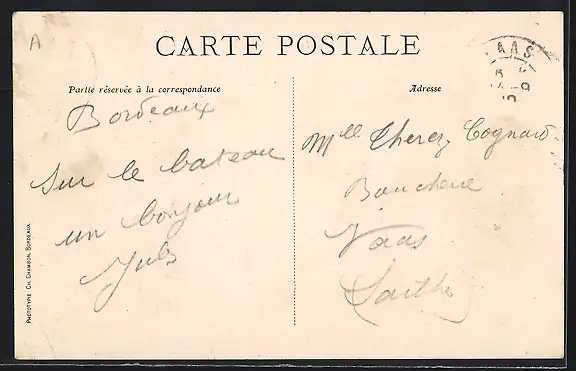 A
CARTE POSTALE
AAS
Partie réservée à la correspondance
Adresse
Bordeaux
Sur le bateau
un bonjour
Jules
Mlle Therez Cognard
Boucherie
Vaas
Sarthe
PHOTOTYPIE CH. CHAMBON, BORDEAUX